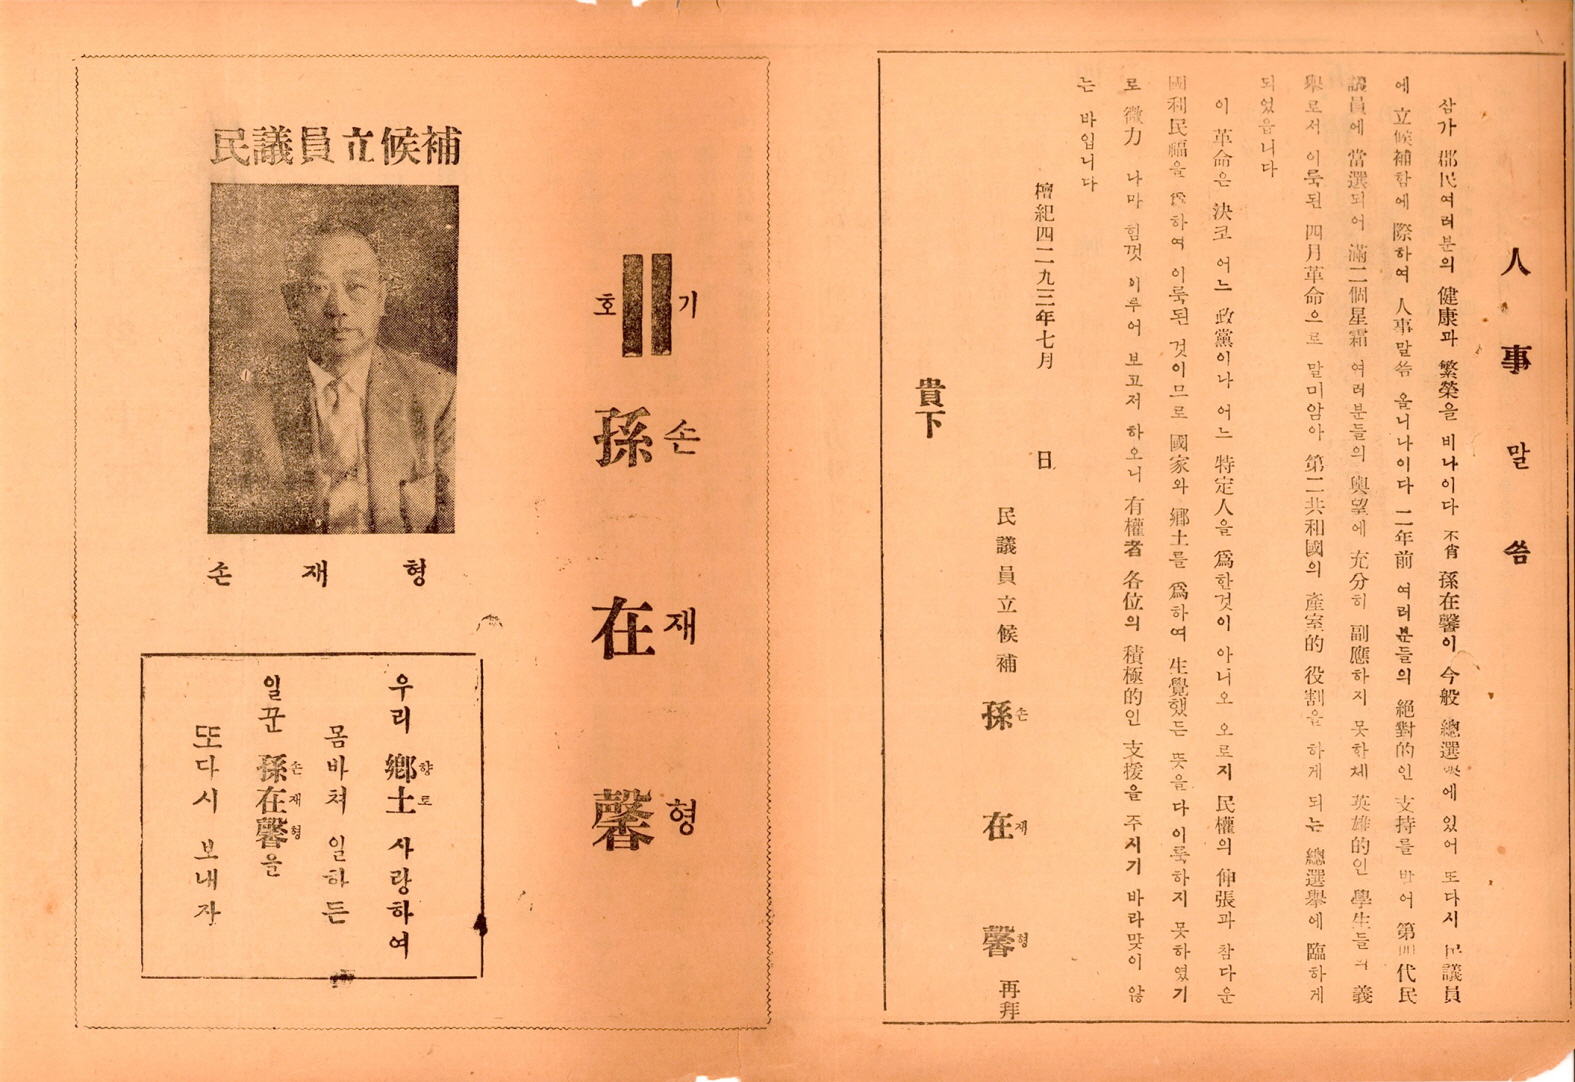 人事말씀
삼가 郡民여러분의 健康과 繁榮을 비나이다 不肖 孫在馨이 今般 總選擧에 있어 또다시 民議員
에 立候補함에 際하여 人事말씀 올니나이다 二年前 여러분들의 絕對的인 支持를 받어 第四代民
議員에 當選되어 滿二個星霜 여러분들의 輿望에 充分히 副應하지 못하체 英雄的인 學生들의 義
擧로서 이룩된 四月革命으로 말미암아 第二共和國의 產室的 役割을 하게 되는 總選擧에 臨하게
되었읍니다
이 革命은 決코 어느 政黨이나 어느 特定人을 爲한것이 아니오 오로지 民權의 伸張과 참다운
國利民福을 爲하여 이룩된 것이므로 國家와 鄕土를 爲하여 生覺했든 뜻을 다 이룩하지 못하였기
로 微力 나마 힘껏 이루어 보고저 하오니 有權者 各位의 積極的인 支援을 주시기 바라맞이 않
는 바입니다
檀紀四二九三年七月 日
民議員立候補 孫在馨 再拜
손재형
貴下
기호 ||
孫在馨
손재형
民議員立候補
손재형
우리 鄕土 사랑하여
향토
몸바쳐 일하든
일꾼 孫在馨을
손재형
또다시 보내자